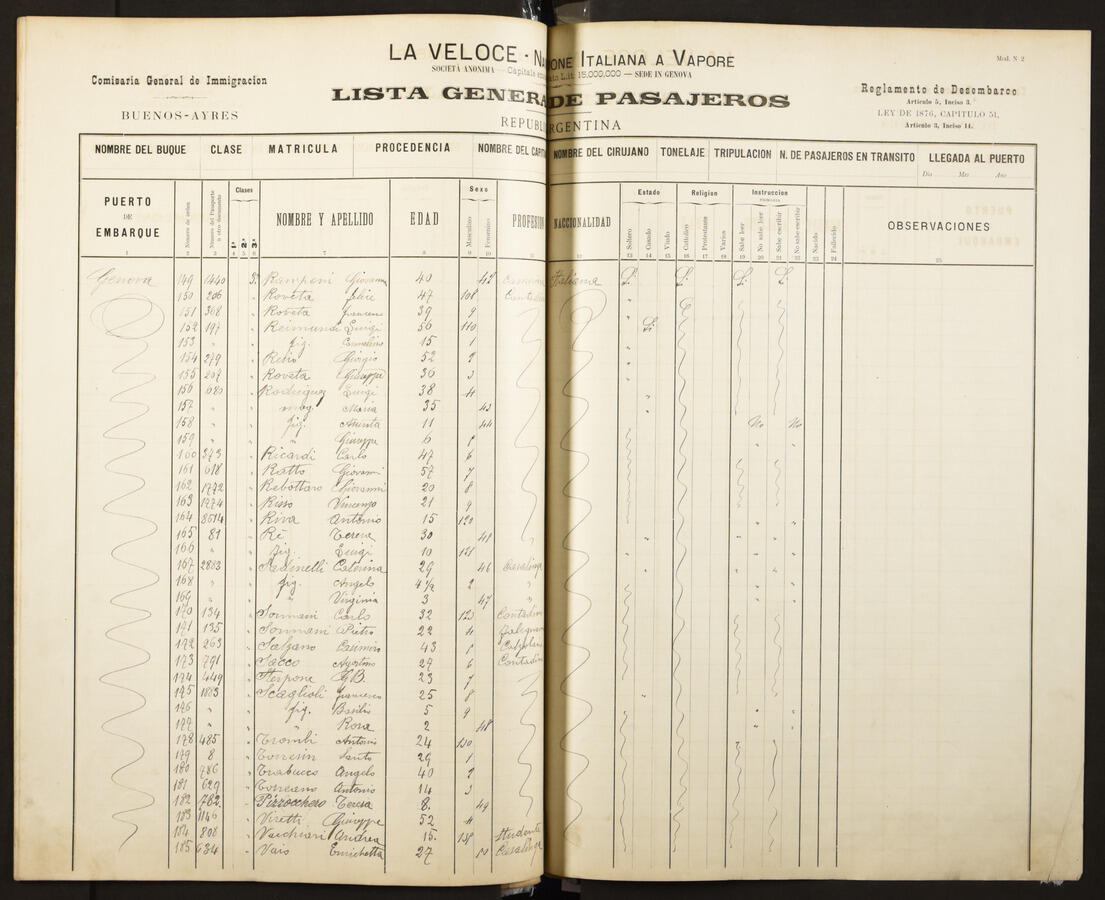 LA VELOCE - NA ONE ITALIANA A VAPORE
SOCIETÀ ANONIMA — Capitale Lit. 15,000,000 — SEDE IN GENOVA
LISTA GENERA DE PASAJEROS
REPUBL RGENTINA
Comisaria General de Immigracion
BUENOS-AYRES
Mod. N 2
Reglamento de Desembarco
Articulo 5, Inciso 3.
LEY DE 1876, CAPITULO 51,
Articulo 3, Inciso 14.
NOMBRE DEL BUQUE CLASE MATRICULA PROCEDENCIA NOMBRE DEL CAPIT NOMBRE DEL CIRUJANO TONELAJE TRIPULACION N. DE PASAJEROS EN TRANSITO LLEGADA AL PUERTO
Dia Mes Ano
PUERTO DE EMBARQUE Numero de orden Numero del Pasaporte o otro documento Clases 1.ª 2.ª 3.ª NOMBRE Y APELLIDO EDAD Sexo Masculino Femenino PROFESION NACCIONALIDAD Estado Soltero Casado Viudo Religion Catolico Protestante Varios Instruccion Sabe leer No sabe leer Sabe escribir No sabe escribir Nacido Fallecido OBSERVACIONES
Genova 149 1440 3ª Ramponi Giovanna 40 Italiana
150 206 Roveta Felice 47 108
151 308 Roveta Francesco 39 9
152 197 Reimundi Luigi 56 110
153 " fig. 15 1
154 279 Giorgio 52 2
155 207 Roveta Giuseppe 36 3
156 680 Rodriguez Luigi 38 4
157 " mog. Maria 35 43
158 " fig. Assunta 11 44 No No
159 " " Giuseppe 6
160 373 Ricardi Carlo 47 6
161 618 Ratto Giovanni 57 7
162 1772 Rebottaro Giovanni 20 8
163 1774 Risso Vincenzo 21 9
164 8514 Riva Antonio 15 120
165 81 Rè Teresa 30
166 " fig. Luigi 10 121
167 2883 Caterina 29 46 Casalinga
168 " fig. Angelo 4½ 2 "
169 " " Virginia 3 47 "
170 134 Sormani Carlo 32 123 Contadin
171 135 Sormani Pietro 22 4
172 263 Salzano Casimiro 43
173 791 Sacco Agostino 27 6 Contadin
174 449 Sterpone G.B. 23 7
175 1883 Scaglioli Francesco 25 8
176 " fig. Basilio 5 9
177 " " Rosa 2 48
178 485 Trombi Antonio 24 130
179 8 Santo 29 1
180 786 Trabucco Angelo 40 2
181 629 Torreano Antonio 14 3
182 762 Pizzocchero Teresa 8. 49
183 1146 Viretti Giuseppe 52 4
184 808 Vacchiari Andrea 15. Studente
185 634 Vaio Enrichetta 27 Casalinga